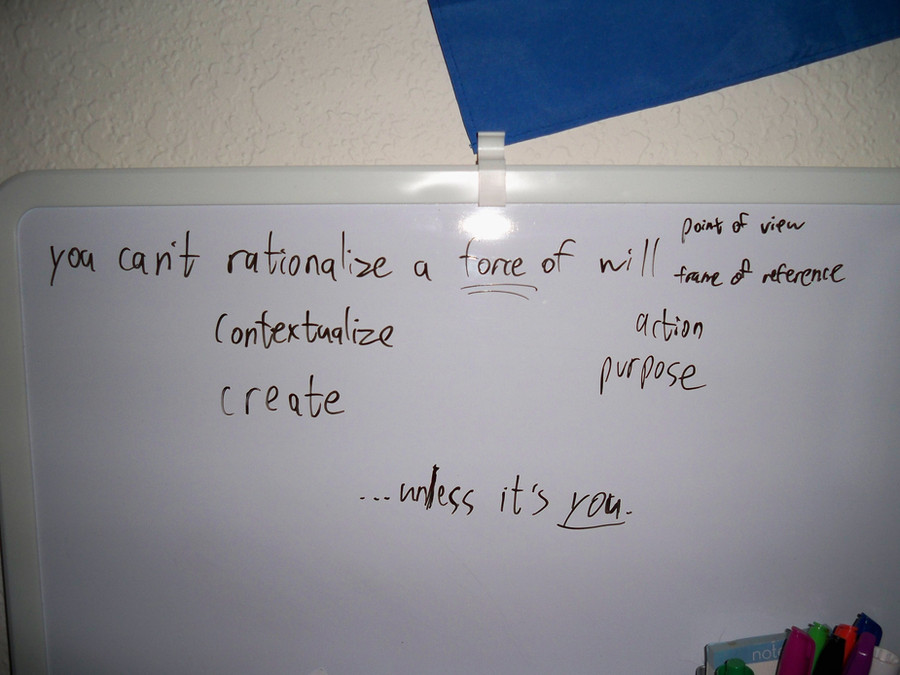 point of view
you can't rationalize a force of will
frame of reference
contextualize action
create purpose
...unless it's you.
note